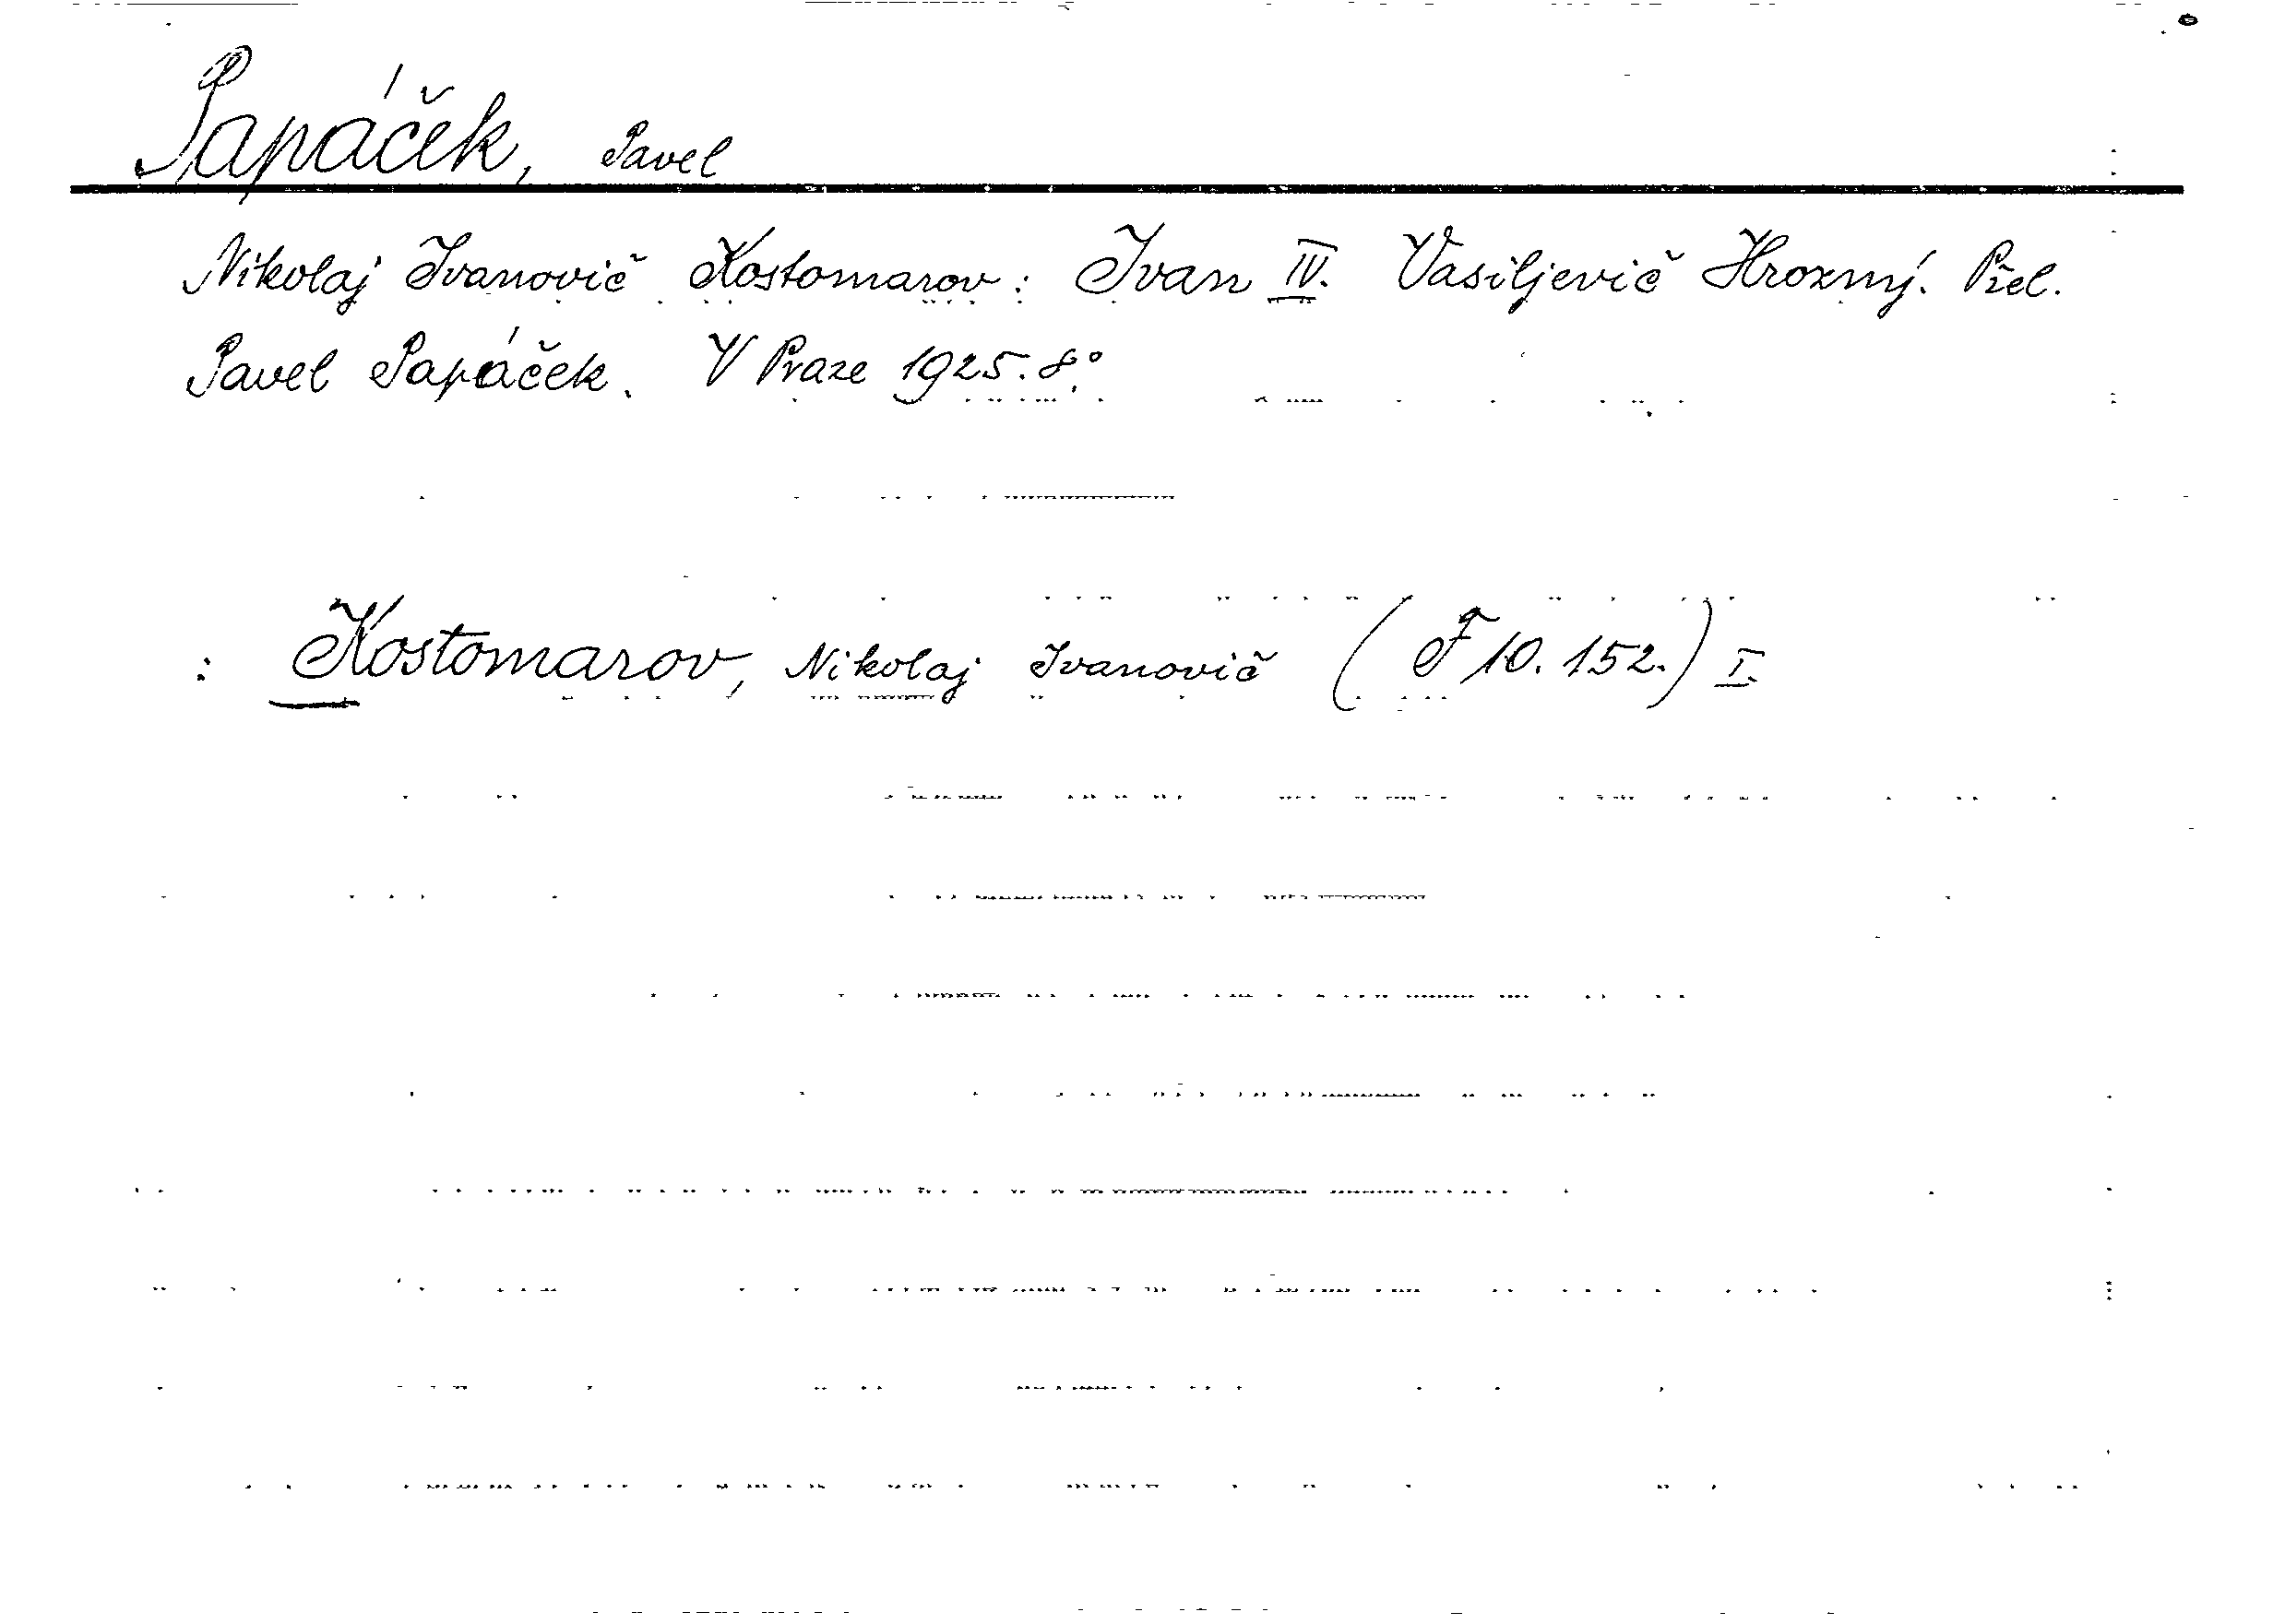 Papáček, Pavel
Nikolaj Ivanovič Kostomarov: Ivan IV. Vasiljevič Hrozný. Přel.
Pavel Papáček. V Praze 1925. 8°.
: Kostomarov, Nikolaj Ivanovič (F 10. 152.) I.